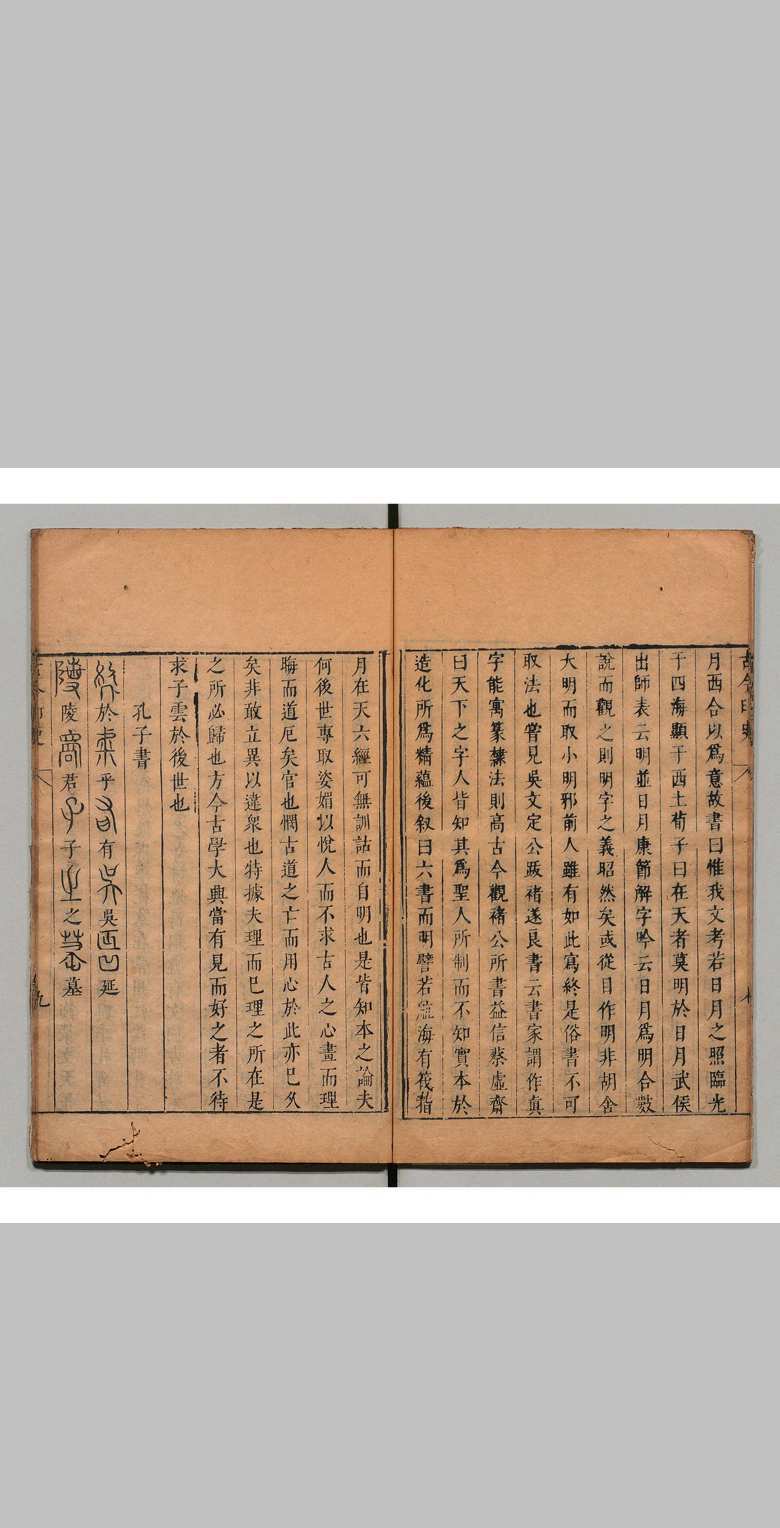 月西合以爲意故書曰惟我文考若日月之照臨光
于四海顯于西土荀子曰在天者莫明於日月武侯
出師表云明並日月康節解字吟云日月爲明合數
說而觀之則明字之義昭然矣或從目作明非胡舍
大明而取小明邪前人雖有如此寫終是俗書不可
取法也嘗見吳文定公跋褚遂良書云書家謂作真
字能寓篆隸法則高古今觀褚公所書益信蔡虛齋
曰天下之字人皆知其爲聖人所制而不知實本於
造化所爲精蘊後叙曰六書而明譬若海有筏指
月在天六經可無訓詁而自明也是皆知本之論夫
何後世專取姿媚以悅人而不求古人之心畫而理
晦而道厄矣官也憫古道之亡而用心於此亦已久
矣非敢立異以違衆也特據夫理而已理之所在是
之所必歸也方今古學大典當有見而好之者不待
求子雲於後世也
孔子書
於乎有吳延
陵君子之墓
九